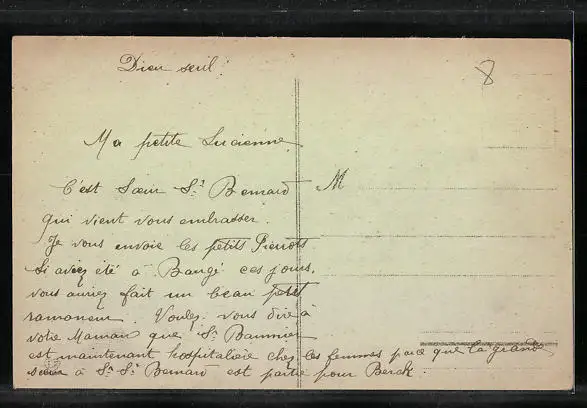 Dieu seul!
8
Ma petite Lucienne
C'est Sœur St Bernard
qui vient vous embrasser.
Je vous envoie les petits Pierrots
Si aviez été à Baugé ces jours,
vous auriez fait un beau petit
ramoneur. Voulez vous dire à
votre Maman que Sr
est maintenant hospitalière chez les femmes parce que la grande
sœur à Sr St Bernard est partie pour Berck.
M